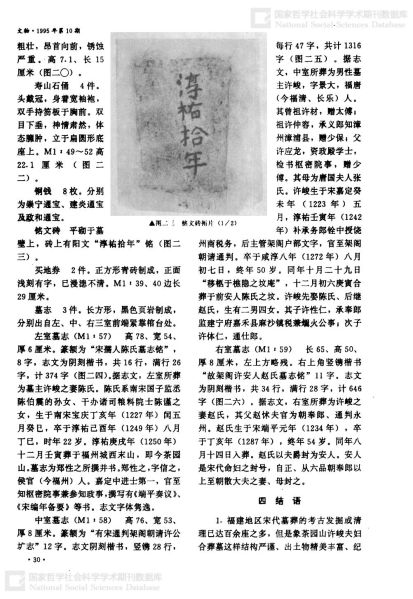 国家哲学社会科学学术期刊数据库
National Social Sciences Database
文物·1995年第10期
粗壮，昂首向前，锈蚀
严重。高7.1、长15
厘米（图二〇）。
寿山石俑 4件。
头戴冠，身着宽袖袍，
双手持笏板于胸前。双
目下垂，神情肃然，体
态臃肿，立于扁圆形底
座上。M1：49～52高
22.1厘米（图二
二）。
铜钱 8枚。分别
为崇宁通宝、建炎通宝
及政和通宝。
铭文砖 平砌于墓
淳祐拾年
▲图二三 铭文砖拓片（1/2）
壁上，砖上有阳文“淳祐拾年”铭（图二
三）。
买地券 2件。正方形青砖制成，正面
浅刻有字，已漫漶不清。M1：39、40边长
29厘米。
墓志 3件。长方形，黑色页岩制成，
分别出自左、中、右三室前端紧靠棺台处。
左室墓志（M1：57） 高78、宽54、
厚6厘米。篆额为“宋孺人陈氏墓志铭”，
8字，志文为阴刻楷书，共16行，满行26
字，计374字（图二四）。据志文，左室所葬
为墓主许峻之妻陈氏。陈氏系南宋国子监丞
陈伯震的孙女、干办诸司粮料院士陈谧之
女，生于南宋宝庆丁亥年（1227年）闰五
月癸巳，卒于淳祐己酉年（1249年）八月
丁巳，时年22岁。淳祐庚戌年（1250年）
十二月壬寅葬于福州城西末山，即今茶园
山。墓志为郑性之所撰并书。郑性之，字信之，
侯官（今福州）人。嘉定中进士第一，官至
知枢密院事兼参知政事，撰写有《端平奏议》、
《宋编年备要》等书。志文字体隽逸。
中室墓志（M1：58） 高76、宽53、
厚8厘米。篆额为“有宋通判架阁朝请许公
圹志”12字。志文阴刻楷书，竖镌28行，
每行47字，共计1316
字（图二五）。据志
文，中室所葬为男性墓
主许峻，字景大，福唐
（今福清、长乐）人。
其曾祖许材，赠太傅；
祖许仲容，承义郎知漳
州漳浦县，赠少保；父
许应龙，资政殿学士，
检书枢密院事，赠少
傅。其母为唐国夫人张
氏。许峻生于宋嘉定癸
未年（1223年）五
月，淳祐壬寅年（1242
年）补承务郎铨中授饶
州南税务，后主管架阁户部文字，官至架阁
朝请通判。卒于咸淳八年（1272年）八月
初七日，终年50岁。同年十月二十九日
“移柩于樵隐之坟庵”，十二月初六庚寅合
葬于前安人陈氏之坟。许峻先娶陈氏、后继
赵氏，生有二男四女。其子许性仁，承奉郎
监建宁府嘉禾县麻纱镇税兼爓火公事；次子
许体仁，通仕郎。
右室墓志（M1：59） 长65、高50、
厚8厘米，左上方略残。右上角竖镌楷书
“故架阁许安人赵氏墓志铭”11字，志文
为阴刻楷书，共34行，满行28字，计646
字（图二六）。据志文，右室所葬为许峻之
妻赵氏，其父赵怺夫官为朝奉郎、通判永
州。赵氏生于宋端平元年（1234年），卒
于丁亥年（1287年），终年54岁。同年八
月十四日入葬。赵氏以夫爵封为安人。安人
是宋代命妇之封号，自正、从六品朝奉郎以
上至朝散大夫之妻、母封之。
四 结 语
1．福建地区宋代墓葬的考古发掘或清
理已达百余座之多，但是象茶园山许峻夫妇
合葬墓这样结构严谨、出土物精美丰富、纪
·30·
国家哲学社会科学学术期刊数据库
National Social Sciences Database